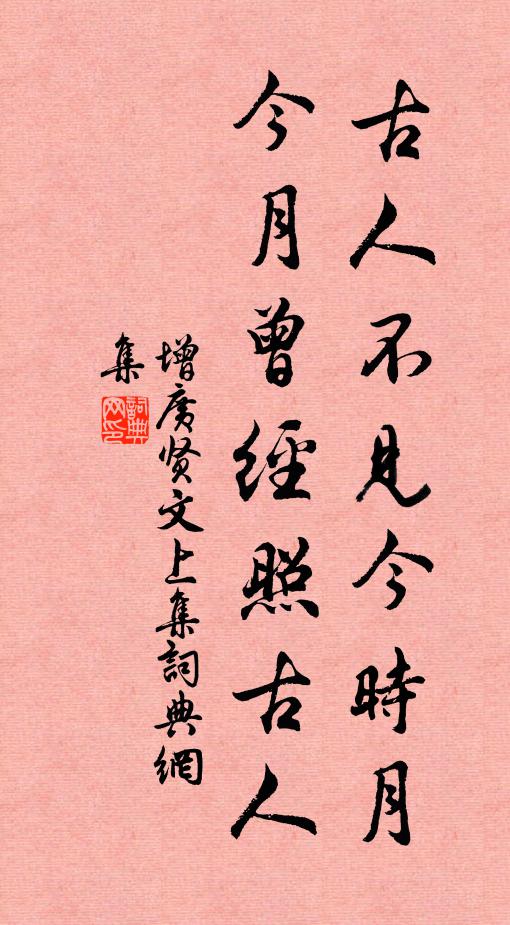 古人不见今時月
今月曾經照古人
增廣贤文上集詞典網
集
詞典
网印